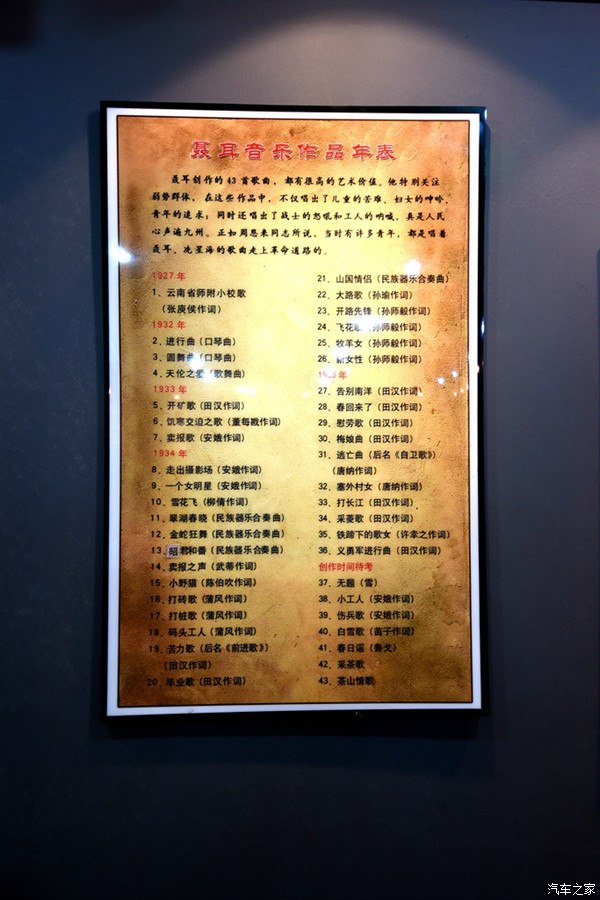 聂耳音乐作品年表
聂耳创作的43首歌曲，都有很高的艺术价值。他特别关注
弱势群体，在这些作品中，不仅唱出了儿童的苦难、妇女的呻吟、
青年的追求；同时还唱出了战士的怒吼和工人的呐喊，真是人民
心声遍九州。正如周恩来同志所说，当时有许多青年，都是唱着
聂耳、冼星海的歌曲走上革命道路的。
1927年
1、云南省师附小校歌
（张庾侯作词）
1932年
2、进行曲（口琴曲）
3、圆舞曲（口琴曲）
4、天伦之爱（歌舞曲）
1933年
5、开矿歌（田汉作词）
6、饥寒交迫之歌（董每戡作词）
7、卖报歌（安娥作词）
1934年
8、走出摄影场（安娥作词）
9、一个女明星（安娥作词）
10、雪花飞（柳倩作词）
11、翠湖春晓（民族器乐合奏曲）
12、金蛇狂舞（民族器乐合奏曲）
13、昭君和番（民族器乐合奏曲）
14、卖报之声（武蒂作词）
15、小野猫（陈伯吹作词）
16、打砖歌（蒲风作词）
17、打桩歌（蒲风作词）
18、码头工人（蒲风作词）
19、苦力歌（后名《前进歌》）
（田汉作词）
20、毕业歌（田汉作词）
21、山国情侣（民族器乐合奏曲）
22、大路歌（孙瑜作词）
23、开路先锋（孙师毅作词）
24、飞花歌（孙师毅作词）
25、牧羊女（孙师毅作词）
26、新女性（孙师毅作词）
1935年
27、告别南洋（田汉作词）
28、春回来了（田汉作词）
29、慰劳歌（田汉作词）
30、梅娘曲（田汉作词）
31、逃亡曲（后名《自卫歌》）
（唐纳作词）
32、塞外村女（唐纳作词）
33、打长江（田汉作词）
34、采菱歌（田汉作词）
35、铁蹄下的歌女（许幸之作词）
36、义勇军进行曲（田汉作词）
创作时间待考
37、无题（雪）
38、小工人（安娥作词）
39、伤兵歌（安娥作词）
40、白雪歌（茧子作词）
41、春日谣（鲁戈）
42、采茶歌
43、茶山情歌
汽车之家